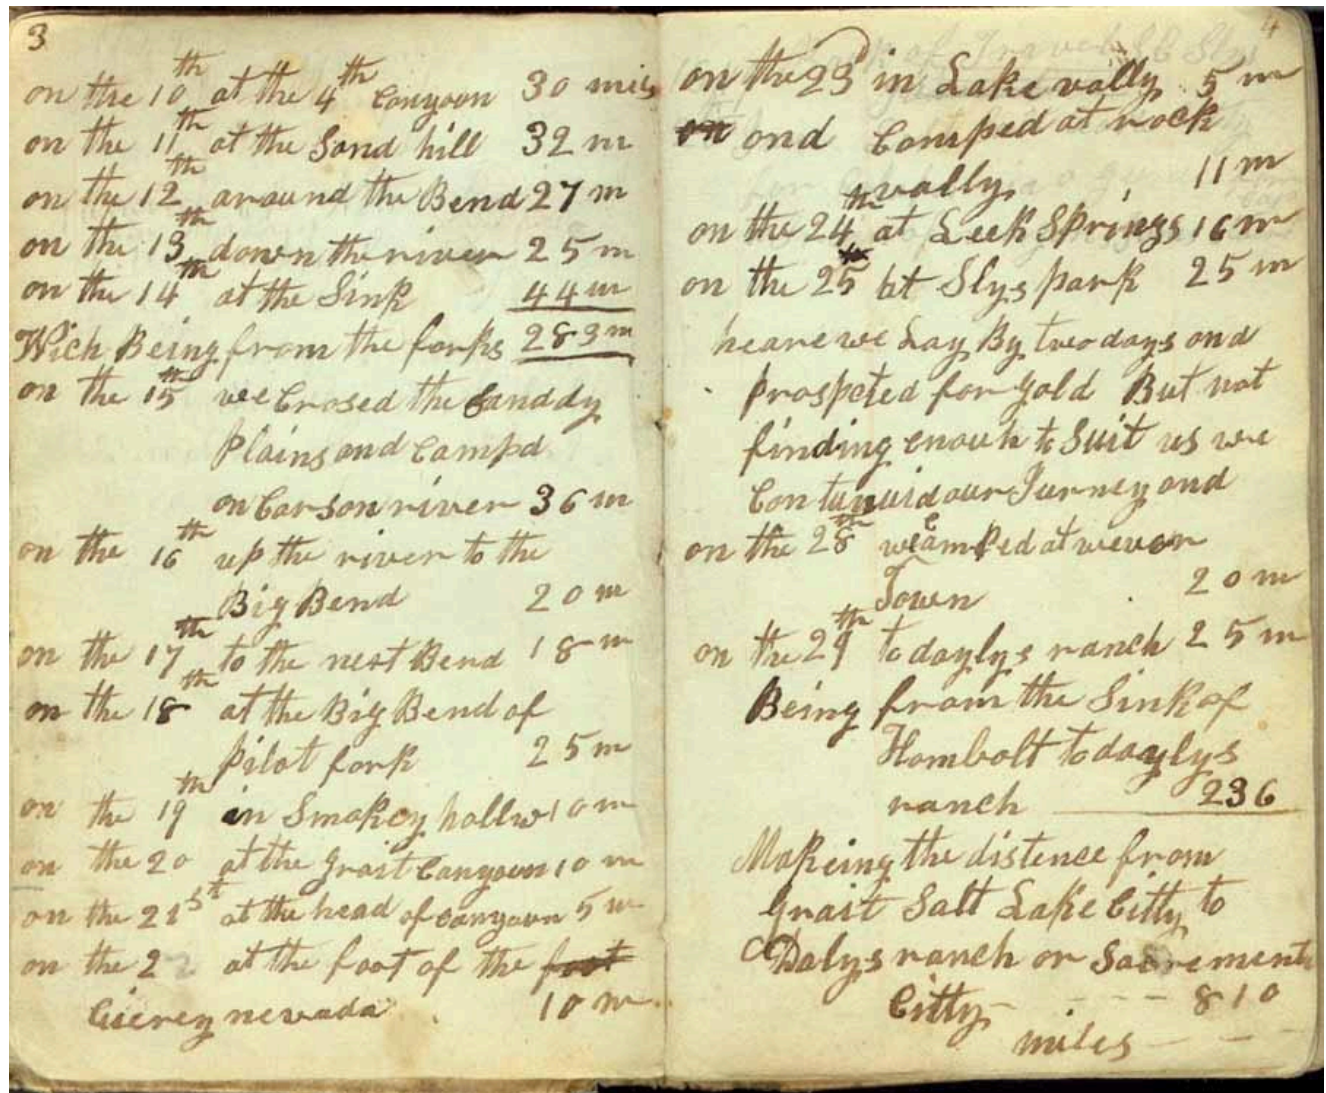 3
on the 10th at the 4th Canyoon 30 mils
on the 11th at the Sand hill 32 m
on the 12th around the Bend 27 m
on the 13th down the river 25 m
on the 14th at the Sink 44 m
Wich Being from the forks 283 m
on the 15th we Crosed the Sanddy
Plains and Campd
on Carson river 36 m
on the 16th up the river to the
Big Bend 20 m
on the 17th to the nest Bend 18 m
on the 18th at the Big Bend of
Pilot fork 25 m
on the 19th in Smokey hollw 10 m
on the 20 at the grait Canyoun 10 m
on the 21st at the head of canyoun 5 m
on the 22 at the foot of the foot
Cierey nevada 10 m
4
on the 23d in Lake vally 5 m
on and Camped at rock
vally 11 m
on the 24th at Leek Springs 16 m
on the 25th at Slys park 25 m
heare we Lay By two days and
Prospcted for gold But not
finding enouh to Suit us we
Contunuid our Jurney and
on the 28th we camped at wever
Town 20 m
on the 29th to daylys ranch 25 m
Being from the Sink of
Hombolt to daylys
ranch 236
Makeing the distence from
grait Salt Lake Citty to
Dalys ranch or Sacremento
Citty - - - - 810
miles - -